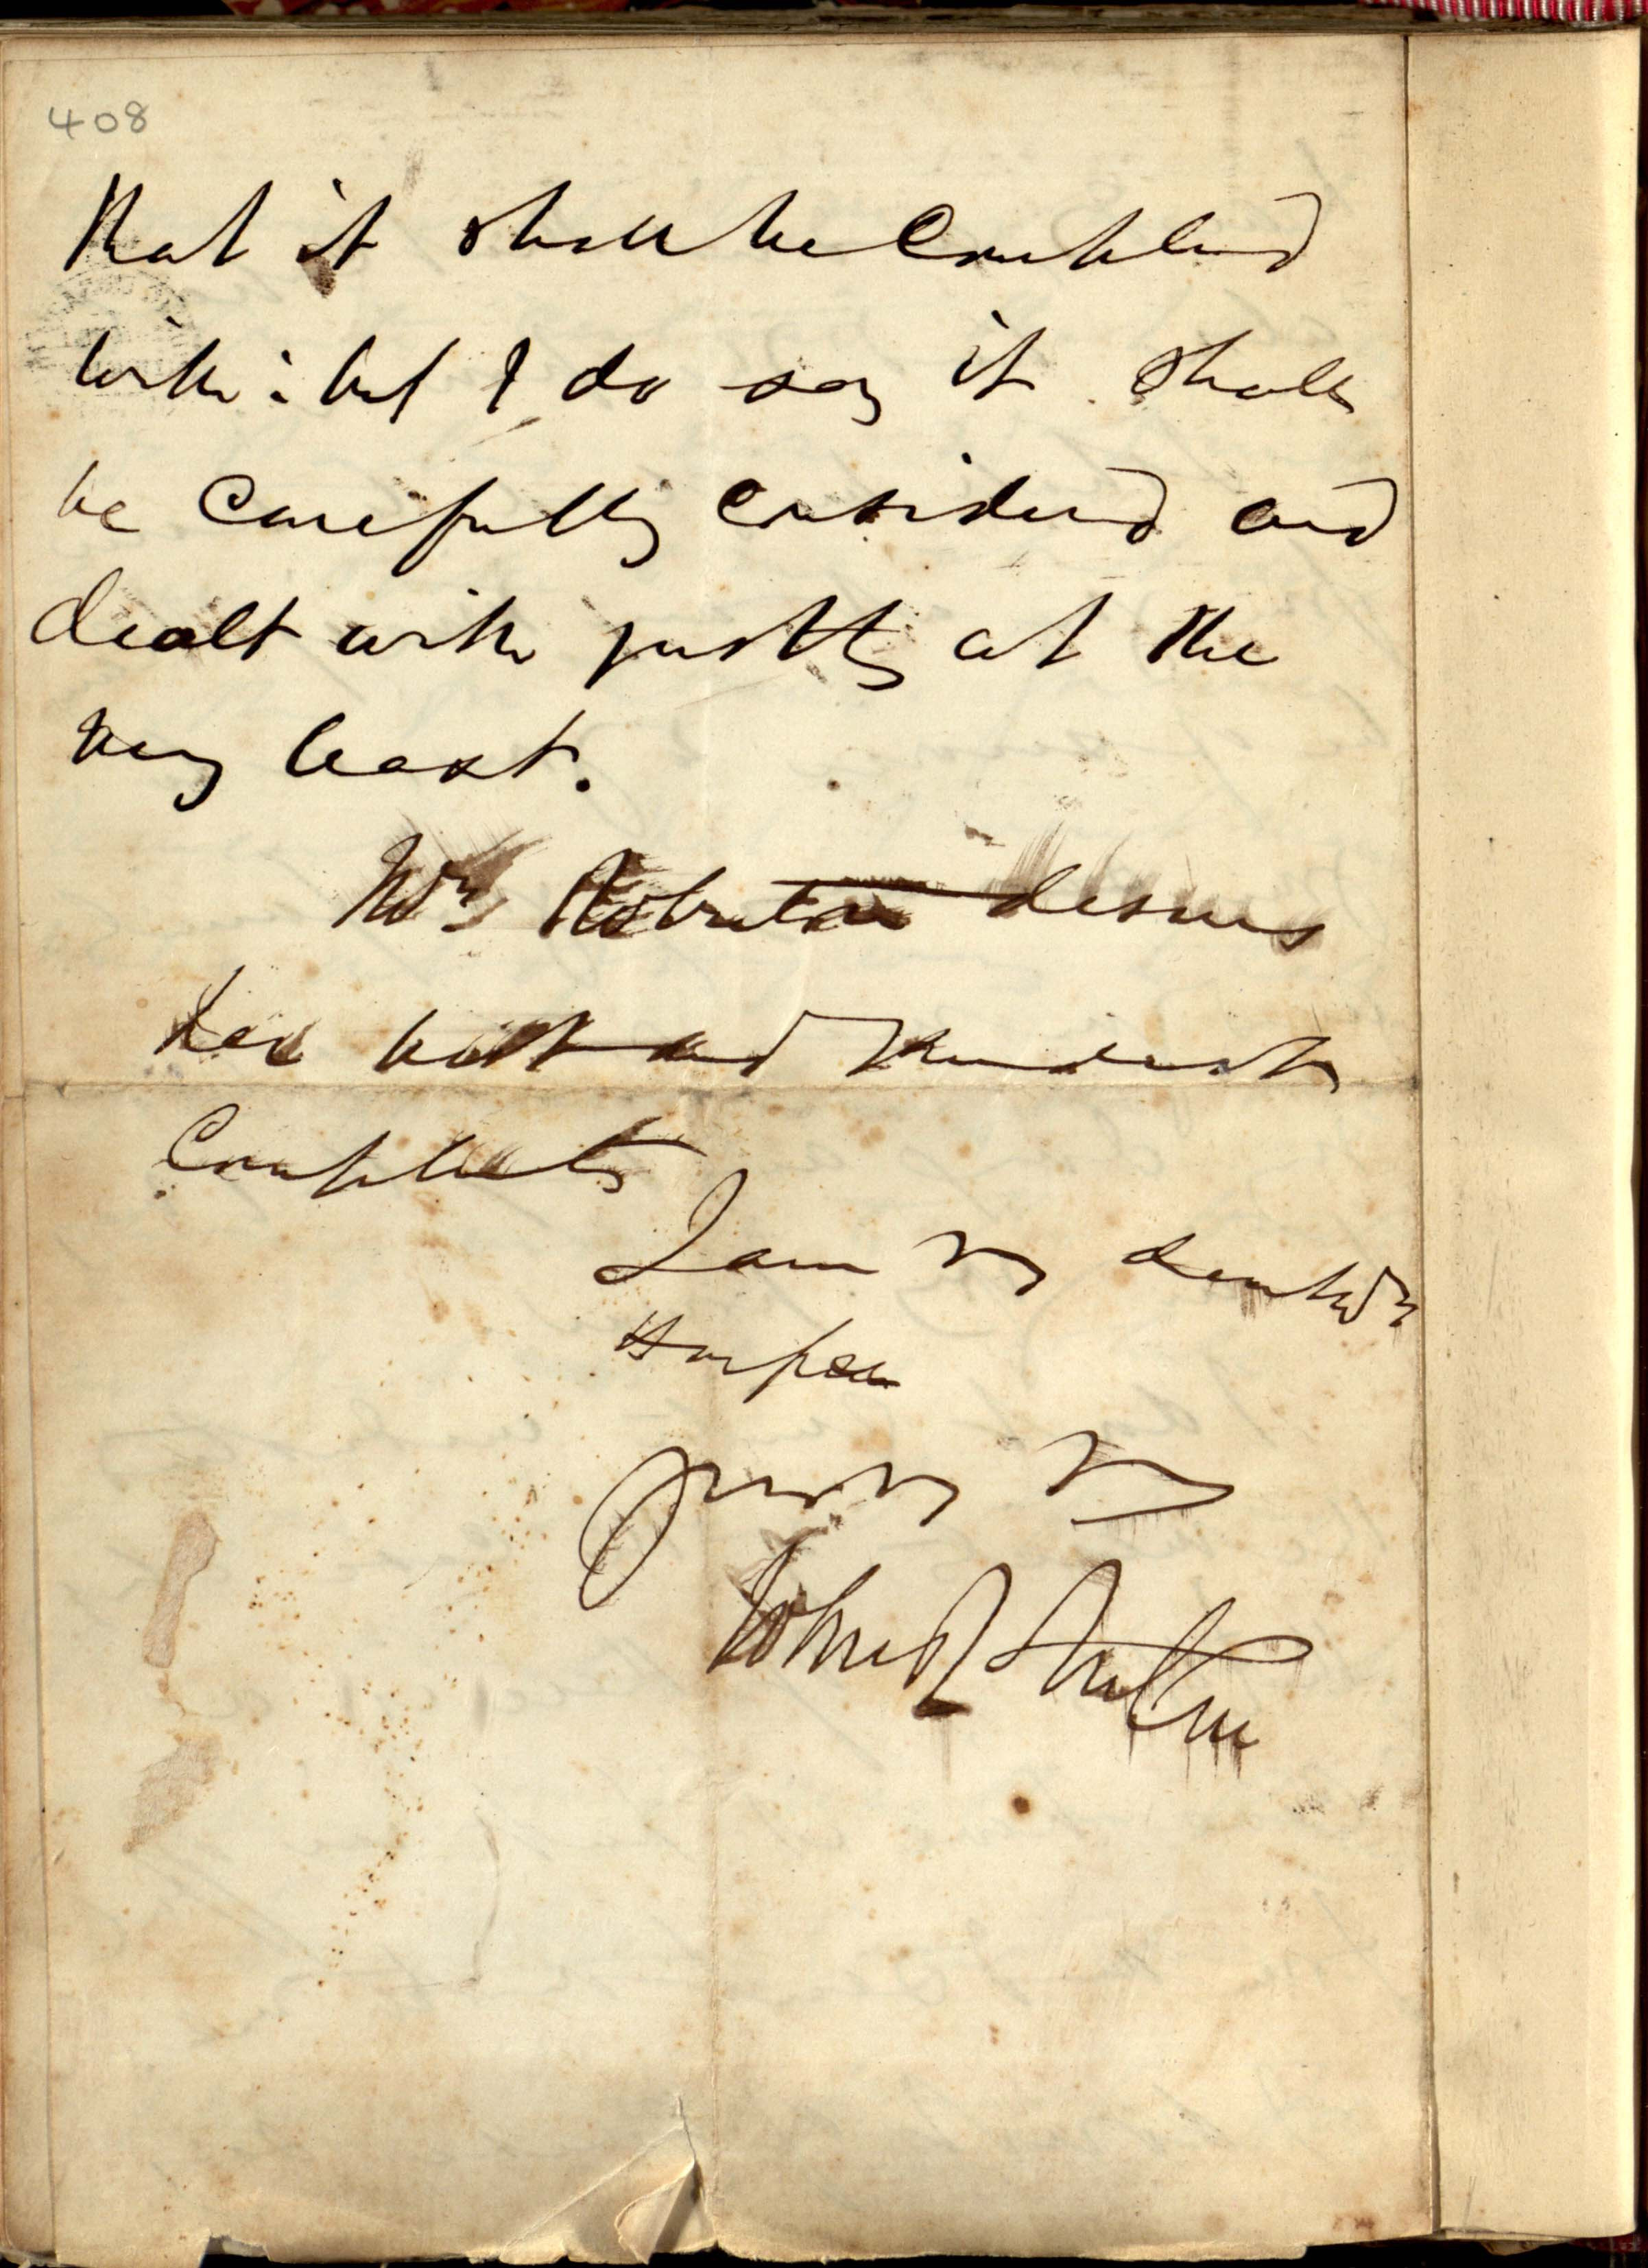 408
that it shall be Complied
with: but I do say it shall
be Carefully considered and
dealt with justly at the
very least.
Mrs Robertson desires
her best and kindest
Compliments
I am my dear
yours very